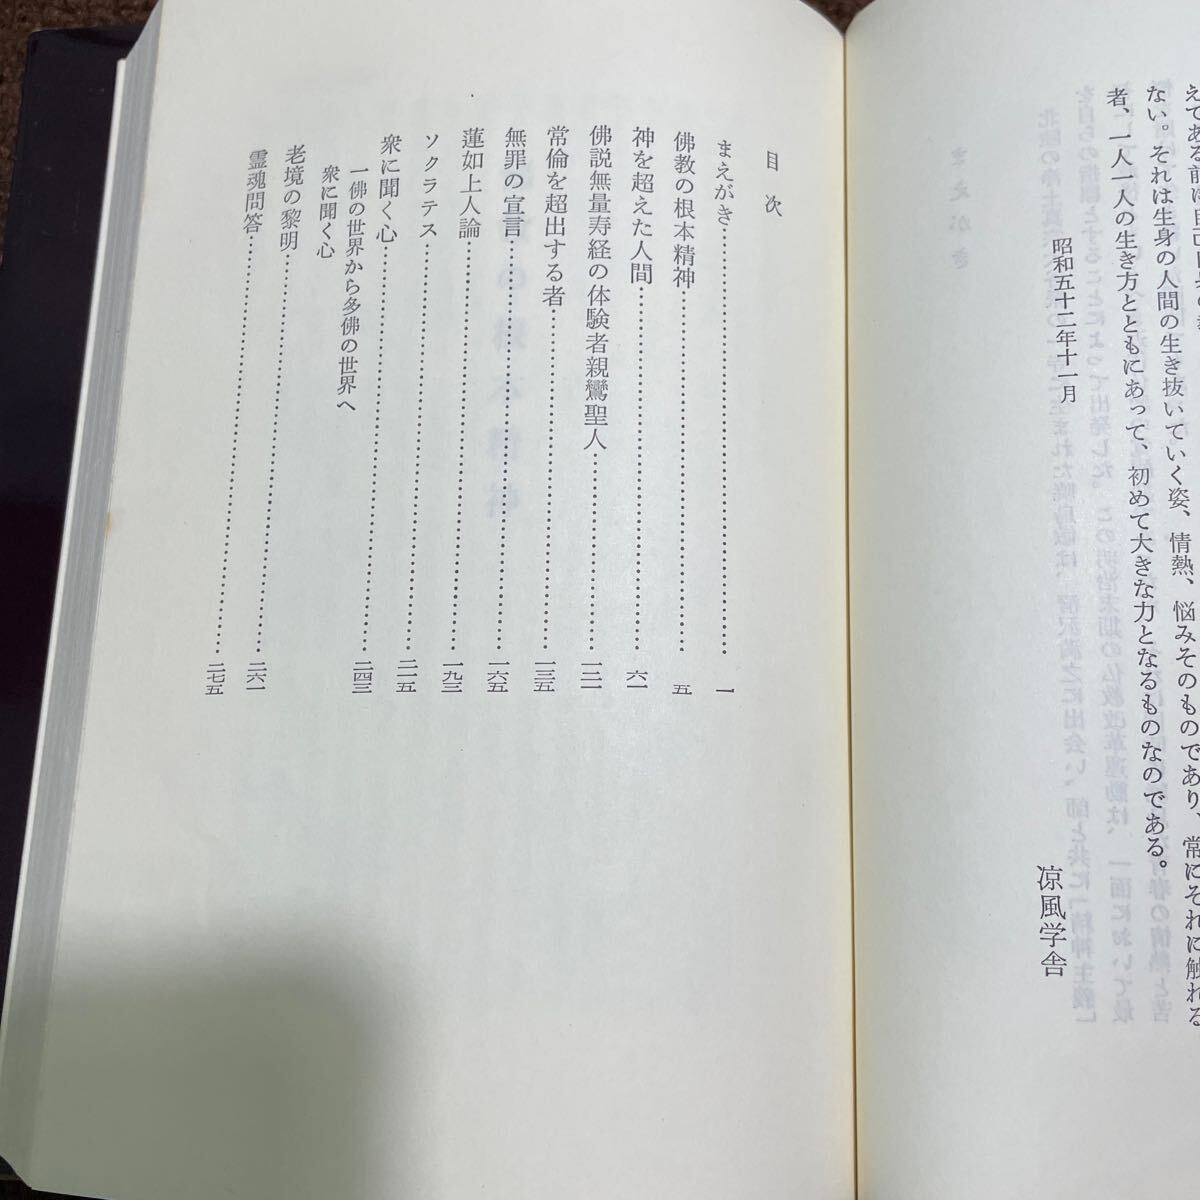 えてある前に自己自身の
ない。それは生身の人間の生き抜いていく姿、情熱、悩みそのものであり、常にそれに触れる
者、一人一人の生き方とともにあって、初めて大きな力となるものなのである。
昭和五十二年十一月
凉風学舎
目次
まえがき…………一
佛教の根本精神…………五
神を超えた人間…………六一
佛説無量寿経の体験者親鸞聖人…………一二一
常倫を超出する者…………一三五
無罪の宣言…………一六五
蓮如上人論…………一九三
ソクラテス…………二一五
衆に聞く心…………二四三
一佛の世界から多佛の世界へ
衆に聞く心
老境の黎明…………二六一
霊魂問答…………二七五